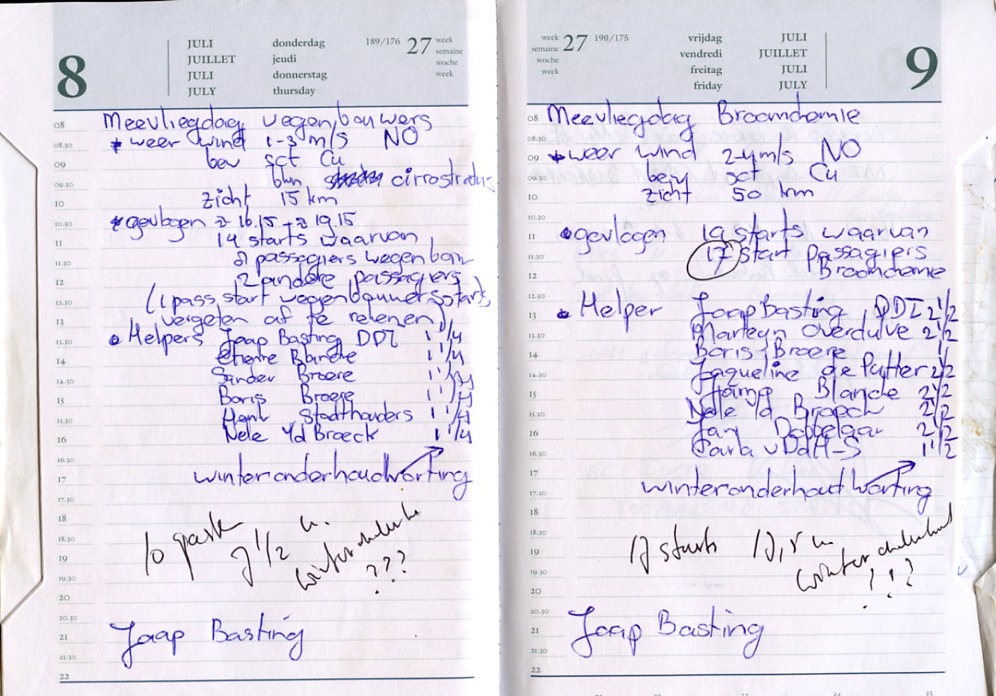 8
JULI donderdag 189/176 27 week
JUILLET jeudi semaine
JULI donnerstag woche
JULY thursday week
08 Meevliegdag wegenbouwers
08.30 * weer wind 1-3 m/s NO
09 bew sct Cu
09.30 bkn cirrostratus
10 zicht 15 km
10.30 * gevlogen 16.15 → 19.15
11 14 starts waarvan
11.30 passagiers wegenbouw
12 2 andere passagiers
12.30 (1 pass start wegenbouwer starts
13 vergeten af te rekenen)
13.30 • Helpers Jaap Basting DDI 1 1/4
14 Etienne Blanche 1 1/4
14.30 Sander Broere 1 1/4
15 Boris Broere 1 1/4
15.30 Henk Stadthouders 1 1/4
16 Nele vd Broeck 1 1/4
16.30
17 winteronderhoud korting
17.30
18
18.30 10
19 7 1/2 u.
19.30 ???
20
20.30
21 Jaap Basting
21.30
22
week 27 190/175 vrijdag JULI
semaine vendredi JUILLET
woche freitag JULI
week friday JULY
9
08 Meevliegdag Broomchemie
08.30
09 * weer wind 2-4 m/s NO
09.30 bew sct Cu
10 zicht 50 km
10.30
11 • gevlogen 19 starts waarvan
11.30 17 start Passagiers
12 Broomchemie
12.30
13 • Helper Jaap Basting DDI 2 1/2
13.30 Marteyn Overdulve 2 1/2
14 Boris Broere 1
14.30 Jaqueline de Putter 2 1/2
15 Blanche 2 1/2
15.30 Nele vd Broeck 2 1/2
16 Jan Dobbelaar 2 1/2
16.30 Carla vDdH-S 1 1/2
17 winteronderhout korting
17.30
18
18.30
19 17 starts 17,5 u
19.30 ?!?
20
20.30
21 Jaap Basting
21.30
22